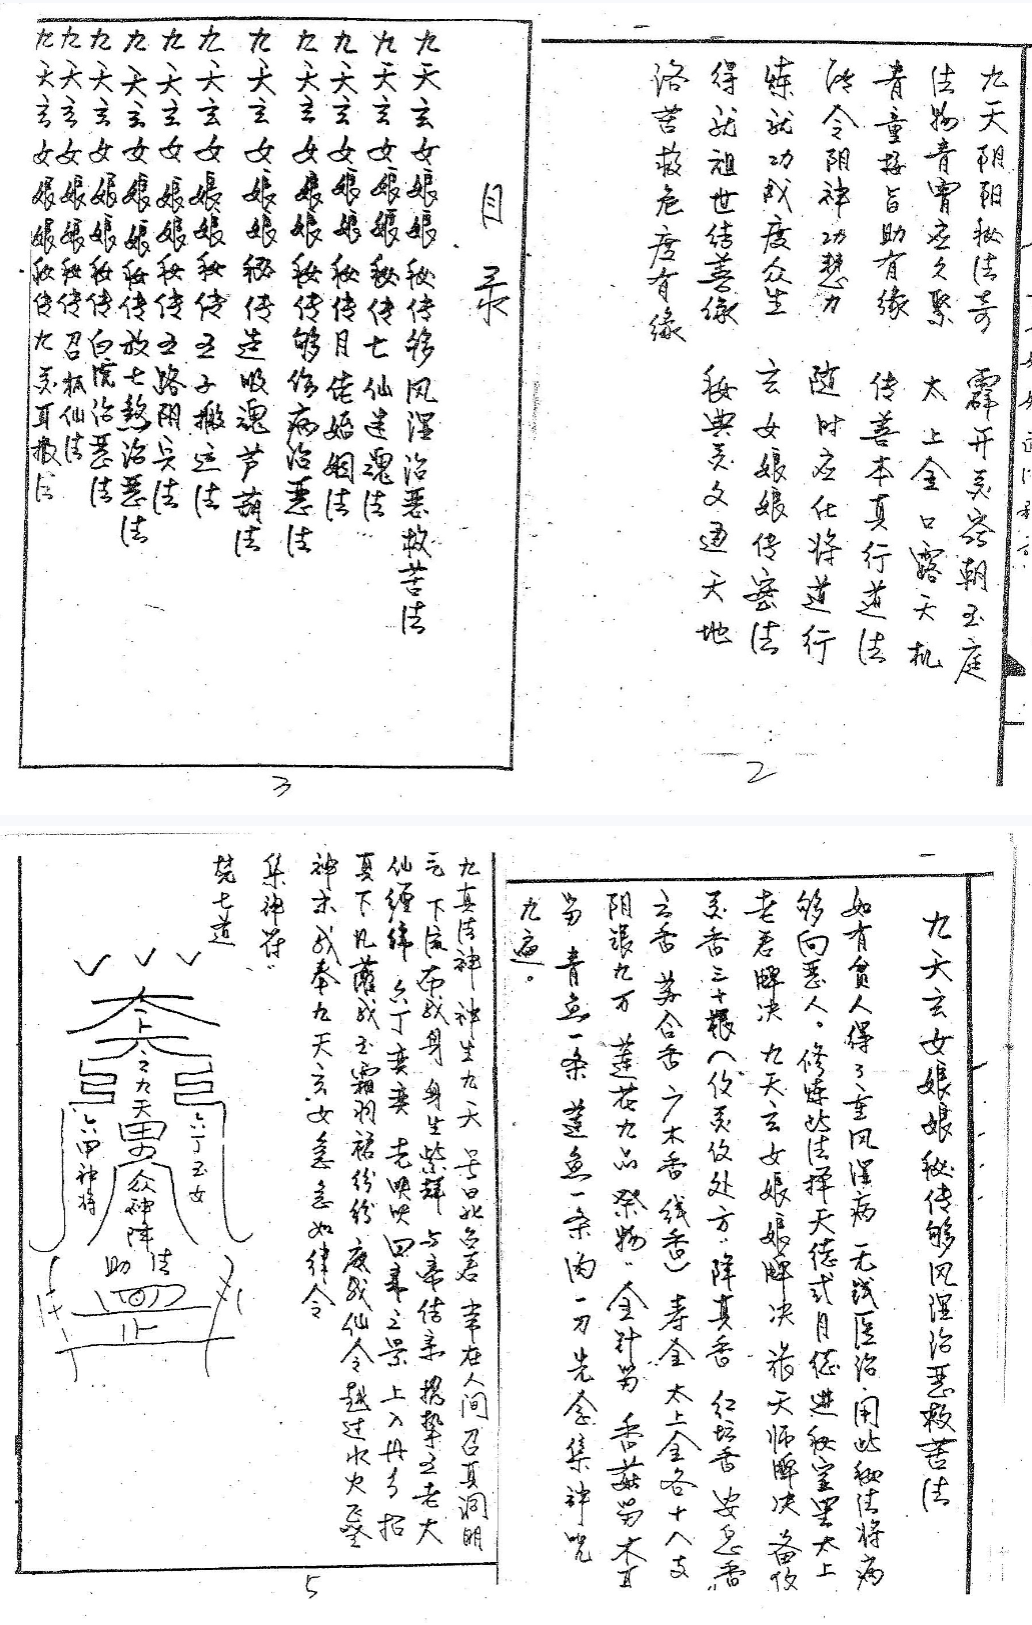 九天阴阳秘法奇 霹开灵窍朝玉庭
法物青霄应久聚 太上金口露天机
青童接旨助有缘 传善本真行道法
阴神功慧力 随时应化将道行
炼就功成度众生 玄女娘娘传密法
得就祖世结善缘 秘典灵文通天地
洛苦救危度有缘
2
目录
九天玄女娘娘秘传够风湿治恶救苦法
九天玄女娘娘秘传七仙迷魂法
九天玄女娘娘秘传月佬婚姻法
九天玄女娘娘秘传够伤病治恶法
九天玄女娘娘秘传造吸魂芦葫法
九天玄女娘娘秘传五子搬运法
九天玄女娘娘秘传五路阴兵法
九天玄女娘娘秘传放七煞治恶法
九天玄女娘娘秘传白虎治恶法
九天玄女娘娘秘传召狐仙法
九天玄女娘娘秘传九灵耳报法
3
九天玄女娘娘秘传够风湿治恶救苦法
如有贫人得了重风湿病 无钱医治 用此秘法将病
够向恶人。修炼此法择天德或月德进秘室 太上
老君牌决 九天玄女娘娘牌决 张天师牌决 备
灵香三十根 降真香 红坛香 安息香
玄香 苏合香 广木香 线香）寿金 太上金各十八支
阴银九万 莲花九品 祭物：金针 香菇 木耳
青鱼一条 莲鱼一条 肉一刀 先念集神咒
九遍。
九真法神 神生九天 号曰北台君 常在人间 召真洞明
下流布我身 身生紫辉 与帝结亲 携挚五老 大
仙缠纬 六丁奕奕 老映映 回 之景 上入丹 招
真下凡 我玉霜羽裙纷纷 度我仙令 越过水火 飞登
神京 我奉九天玄女急急如律令
集神符：
烧七道
太上
之九天
六丁玉女
六甲神将
众神降
助法
5